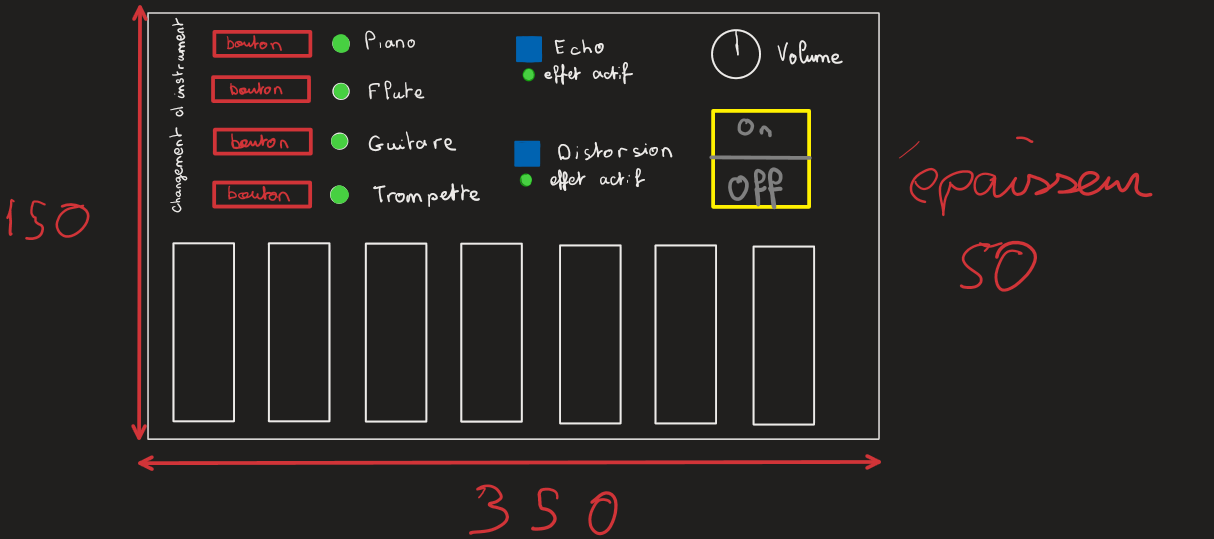 Changement d instrument
bouton Piano
bouton Flute
bouton Guitare
bouton Trompette
Echo
effet actif
Distorsion
effet actif
Volume
On
Off
150
350
épaisseur
50